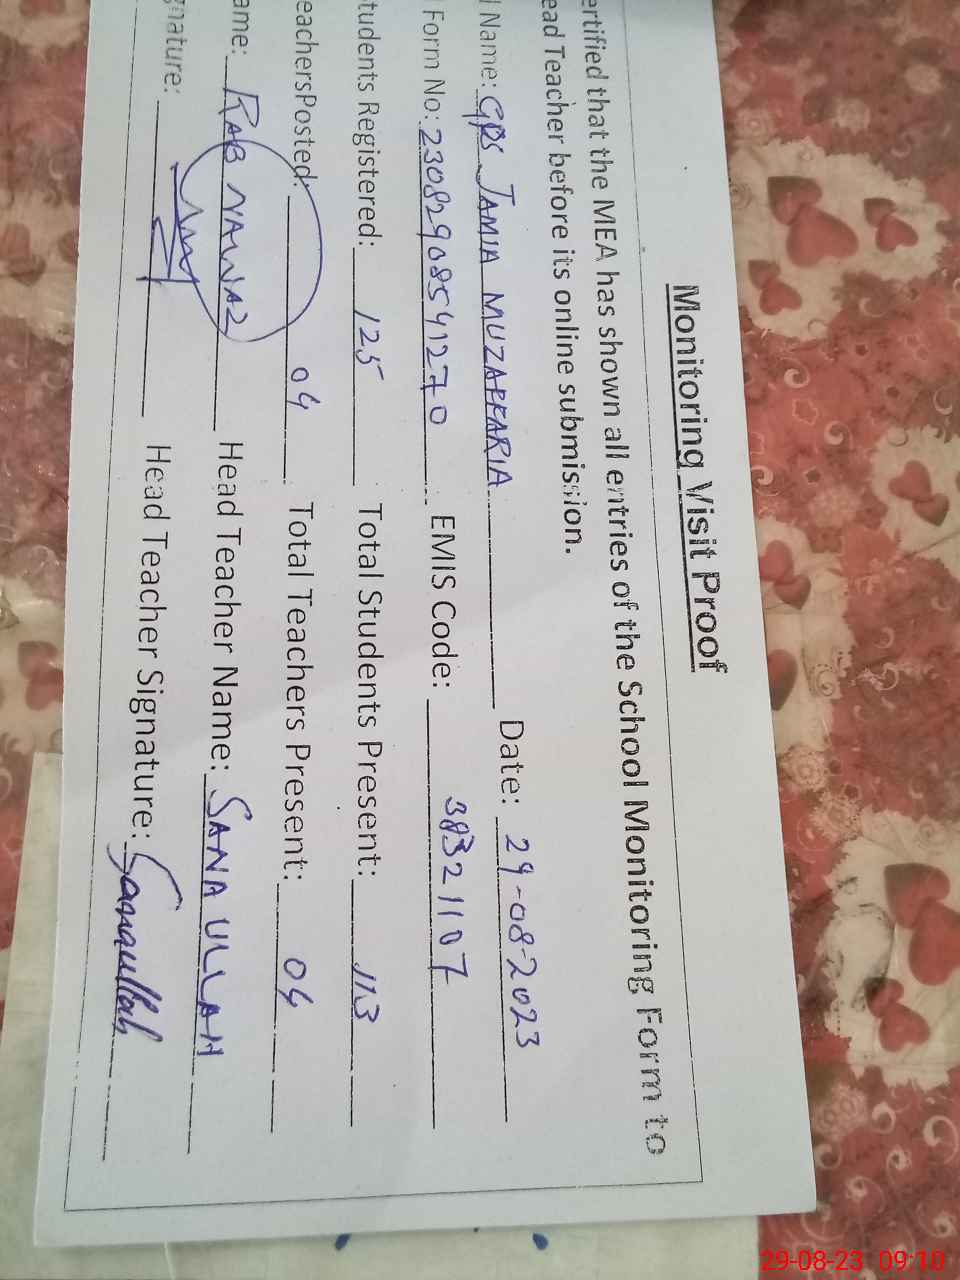 Monitoring Visit Proof
ertified that the MEA has shown all entries of the School Monitoring Form to
ead Teacher before its online submission.
l Name: GPS JAMIA MUZAFFARIA Date: 29-08-2023
Form No: 230829085941270 EMIS Code: 38321107
tudents Registered: 125 Total Students Present: 113
eachersPosted: 04 Total Teachers Present: 04
ame: RAB NAWAZ Head Teacher Name: SANA ULLAH
gnature: Head Teacher Signature: Sanaullah
29-08-23 09:10